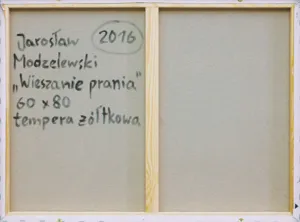 Jarosław 2016
Modzelewski
„Wieszanie prania"
60 x 80
tempera żółtkowa